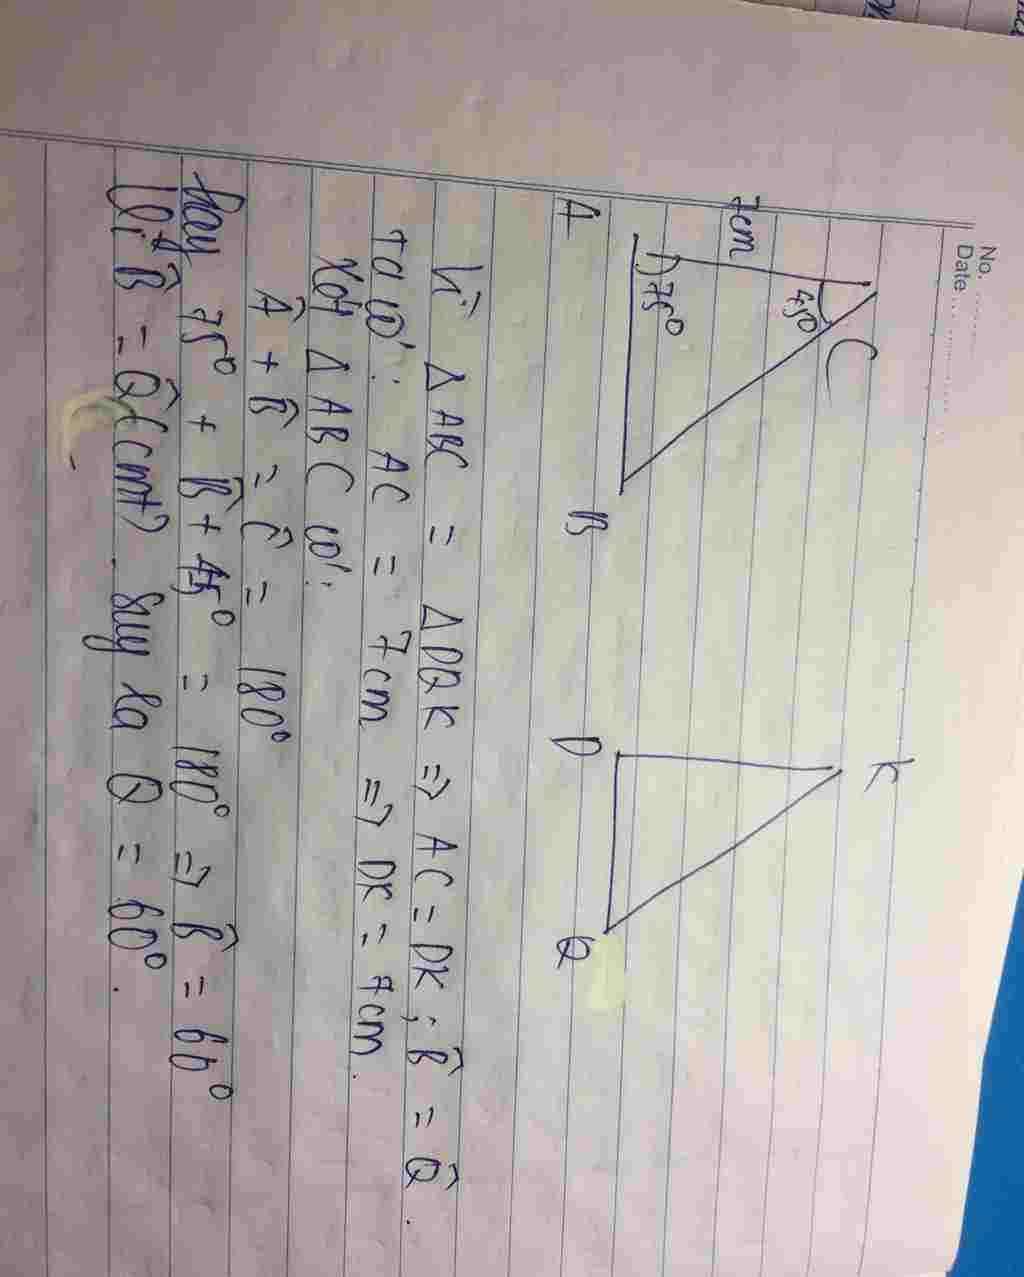 No. ..........
Date .................
C
K
45°
7cm
75°
A
B
D
Q
Vì Δ ABC = ΔDQK => AC = DK ; B̂ = Q̂ .
Ta có : AC = 7cm => DK = 7cm .
Xét Δ ABC có :
Â + B̂ = Ĉ = 180°
hay 75° + B̂ + 45° = 180° => B̂ = 60°
lại B̂ = Q̂ (cmt) . Suy ra Q = 60° .